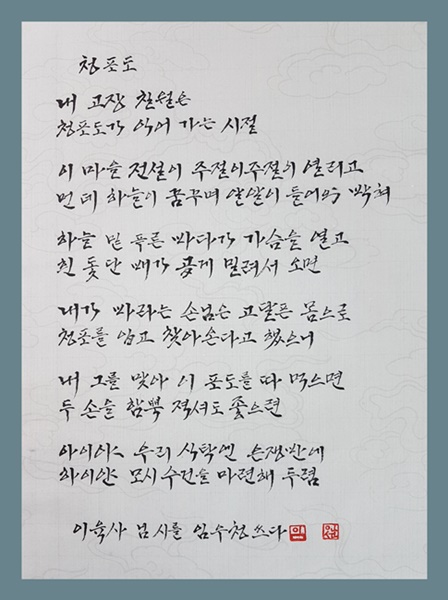 청포도
내 고장 칠월은
청포도가 익어 가는 시절
이 마을 전설이 주절이주절이 열리고
먼 데 하늘이 꿈꾸며 알알이 들어와 박혀
하늘 밑 푸른 바다가 가슴을 열고
흰 돛단 배가 곱게 밀려서 오면
내가 바라는 손님은 고달픈 몸으로
청포를 입고 찾아온다고 했으니
내 그를 맞아 이 포도를 따 먹으면
두 손을 함뿍 적셔도 좋으련
아이야 우리 식탁엔 은쟁반에
하이얀 모시수건을 마련해 두렴
이육사 님 시를 임수청 쓰다